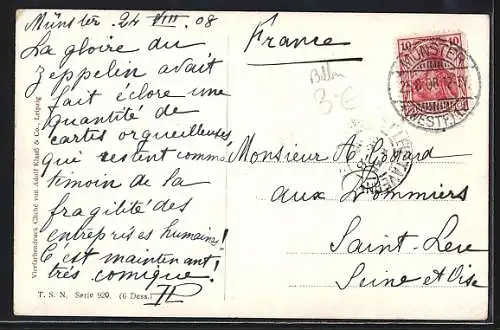 Münster. 24 VIII. 08
La gloire du
Zeppelin avait
fait éclore une
quantité de
cartes orgueilleuses,
qui restent comme
témoin de la
fragilité des
entreprises humaines!
C'est maintenant
très comique!
T. S. N. Serie 920. (6 Dess.)
Vierfarbendruck Cliché von Adolf Klauß & Co., Leipzig
France
3-€
10 10
MÜNSTER
(WESTF.)
Monsieur A.
aux Pommiers
Saint-Leu
Seine et Oise